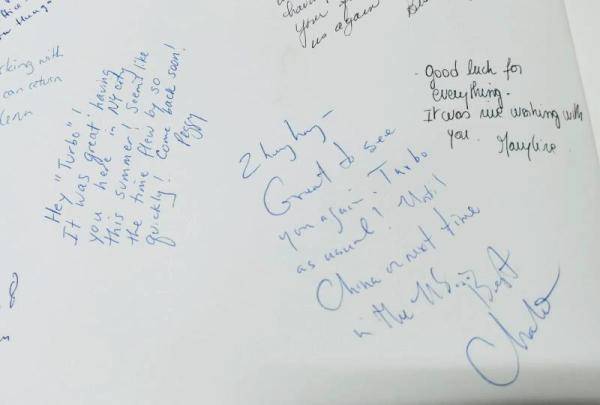 you
us again
rking with
can return
Hey "Turbo"!
It was great having
you here in NY city
this summer! Seem't like
the time flew by so
quickly! Come back soon!
Peggy
Great to see
you again. Turbo
as usual! Until
China or next time
in the US... Best
Good luck for
everything.
It was nice working with
you.